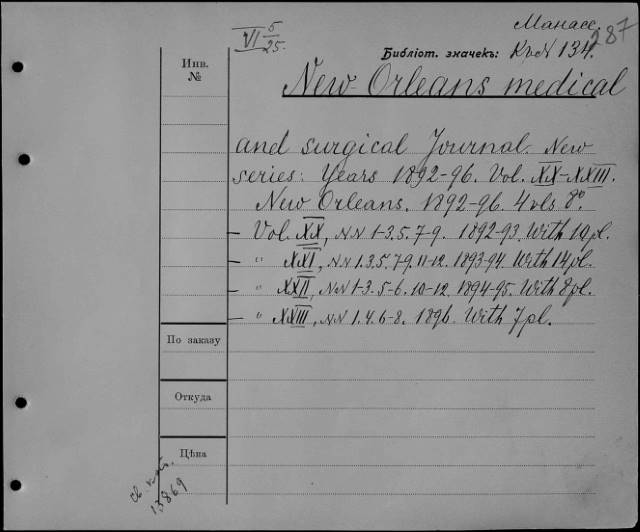 Манассе.
287
VI 5/25.
Библіот. значекъ: KvN 134.
Инв.
№
New Orleans medical
and surgical Journal. New
series: Years 1892-96. Vol. XX-XXIII.
New Orleans. 1892-96. 4 vls 8°
– Vol. XX, NN 1-3.5.7-9. 1892-93. With 10 pl.
– " XXI, NN 1.3.5.7-9.11-12. 1893-94. With 14 pl.
– " XXII, NN 1-3.5-6.10-12. 1894-95. With 8 pl.
– " XXIII, NN 1.4.6-8. 1896. With 7 pl.
По заказу
Откуда
Цѣна
13869